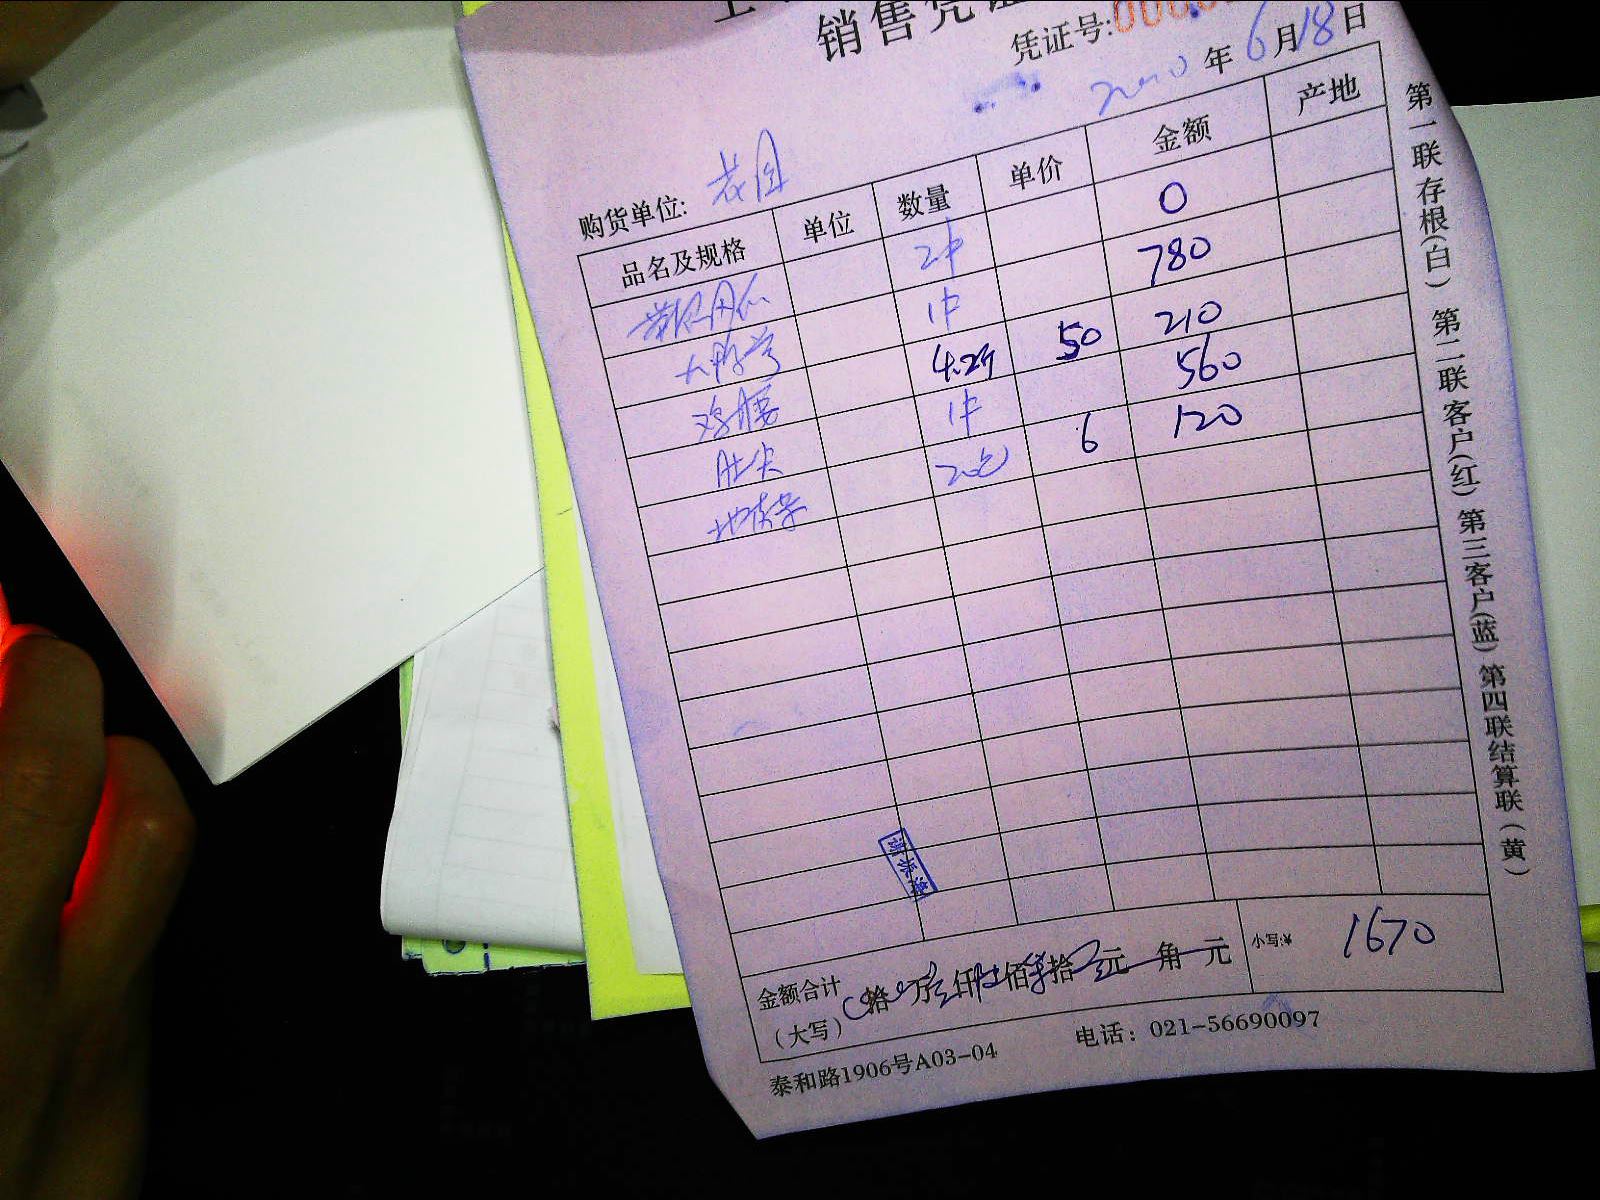 销售凭证
凭证号:
年6月18日
购货单位:
品名及规格 单位 数量 单价 金额 产地
2件 0
大 1件 780
鸡腰 4.2斤 50 210
肚尖 1件 560
地 20包 6 120
金额合计 拾 万 仟 佰 拾 元 角 元 小写:¥ 1670
(大写)
泰和路1906号A03-04 电话: 021-56690097
第一联存根(白) 第二联客户(红) 第三客户(蓝) 第四联结算联(黄)